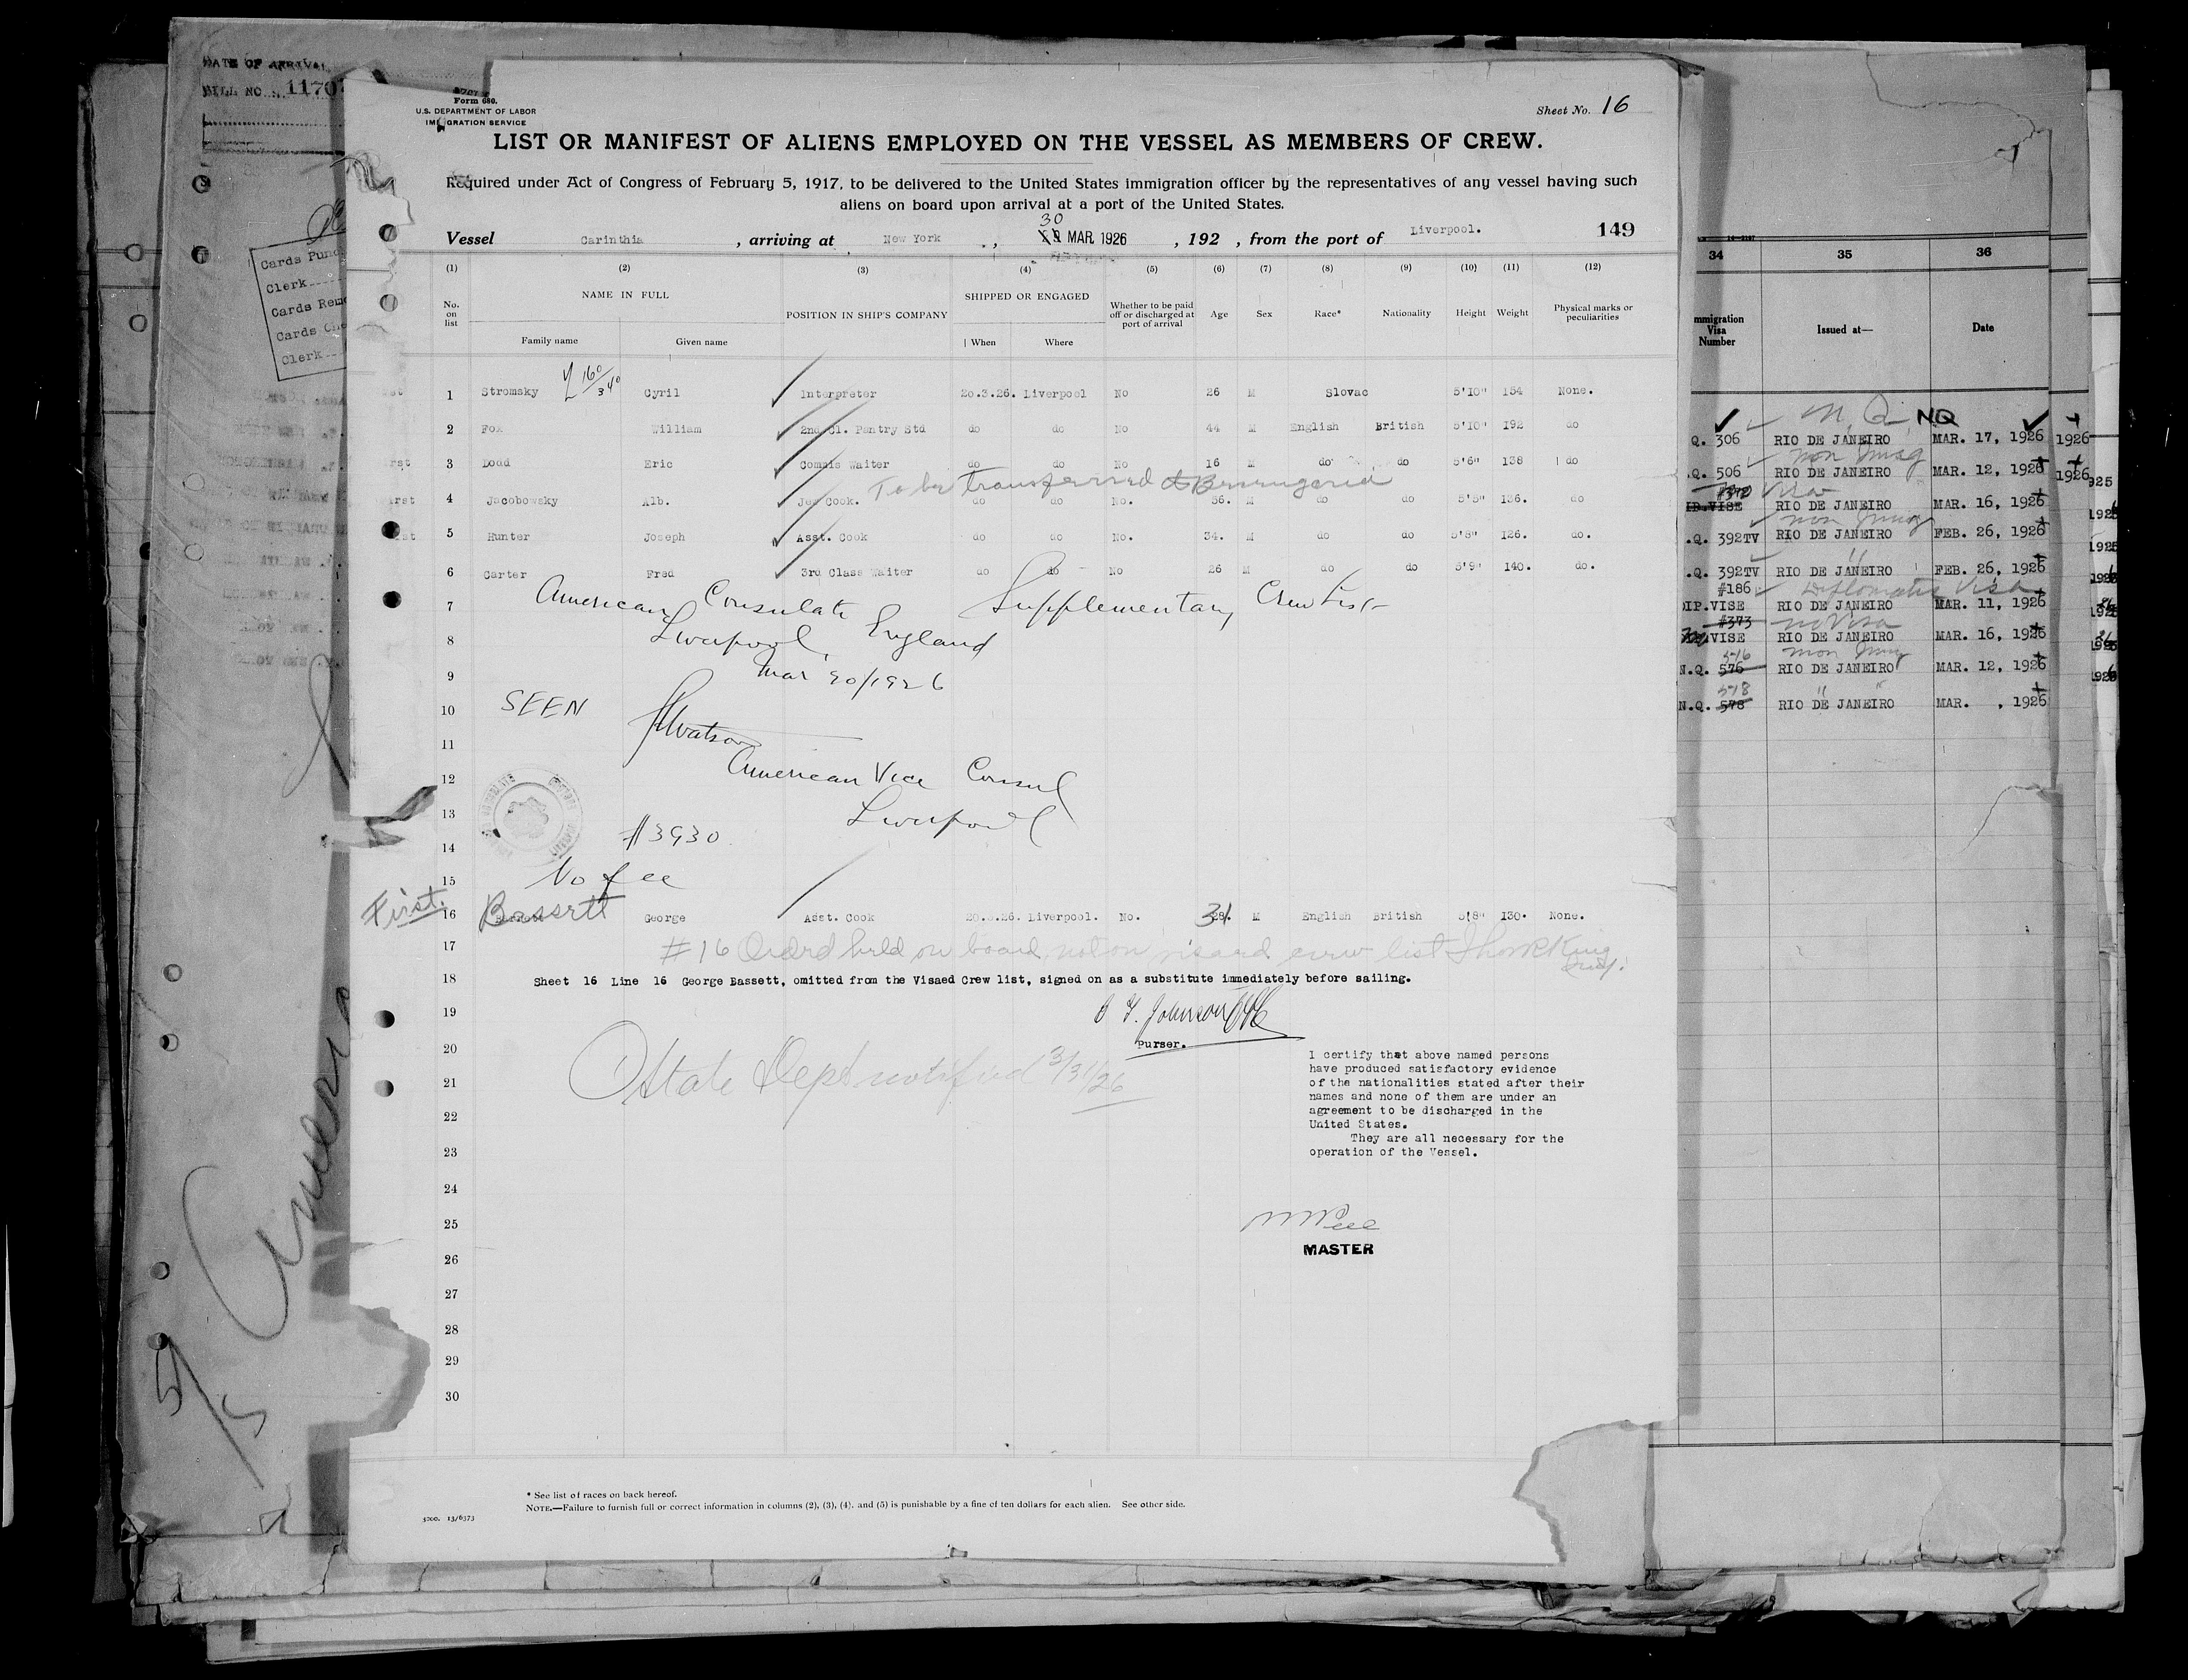 DATE OF ARRIVAL
BILL NO. 1170
Cards Punc
Clerk
Cards Remo
Cards Che
Clerk
Form 680.
U.S. DEPARTMENT OF LABOR
IMMIGRATION SERVICE
Sheet No. 16
LIST OR MANIFEST OF ALIENS EMPLOYED ON THE VESSEL AS MEMBERS OF CREW.
Required under Act of Congress of February 5, 1917, to be delivered to the United States immigration officer by the representatives of any vessel having such
aliens on board upon arrival at a port of the United States.
30
Vessel Carinthia , arriving at New York , 29 MAR 1926 , 192 , from the port of Liverpool. 149
(1) (2) (3) (4) (5) (6) (7) (8) (9) (10) (11) (12)
No. on list NAME IN FULL POSITION IN SHIP'S COMPANY SHIPPED OR ENGAGED Whether to be paid off or discharged at port of arrival Age Sex Race* Nationality Height Weight Physical marks or peculiarities
Family name Given name When Where
160/340
1 Stromsky Cyril Interpreter 20.3.26. Liverpool No 26 M Slovac 5'10" 154 None.
2 Fox William 2nd Cl. Pantry Std do do No 44 M English British 5'10" 192 do
3 Dodd Eric Commis Waiter do do No 16 M do do 5'6" 138 do
To be transferred to Berengaria
4 Jacobowsky Alb. Jew Cook. do do No. 56. M do do 5'5" 136. do
5 Hunter Joseph Asst. Cook do do No. 34. M do do 5'8" 126. do.
6 Carter Fred 3rd Class Waiter do do No 26 M do do 5'9" 140. do.
American Consulate Supplementary Crew List
7
Liverpool, England
8
Mar 20/1926
9
10 SEEN
Watson
11
American Vice Consul
12
Liverpool
13
#3930
14
No fee
15
First. 16 Bassett George Asst. Cook 20.3.26. Liverpool. No. 31 28. M English British 5'8" 130. None.
17 #16 Ordrd held on board not on visaed crew list
18 Sheet 16 Line 16 George Bassett, omitted from the Visaed Crew list, signed on as a substitute immediately before sailing.
19 Johnson
Purser.
20
21 State Dept notified 3/31/26
I certify that above named persons
have produced satisfactory evidence
of the nationalities stated after their
names and none of them are under an
agreement to be discharged in the
United States.
They are all necessary for the
operation of the Vessel.
22
23
24
25
MASTER
26
27
28
29
30
* See list of races on back hereof.
NOTE.—Failure to furnish full or correct information in columns (2), (3), (4), and (5) is punishable by a fine of ten dollars for each alien. See other side.
5000. 13/6373
34 35 36
mmigration Visa Number Issued at— Date
N.Q. NQ
Q. 306 RIO DE JANEIRO MAR. 17, 1926 1926
.Q. 506 RIO DE JANEIRO MAR. 12, 1926 1926
VISE RIO DE JANEIRO MAR. 16, 1926
.Q. 392TV RIO DE JANEIRO FEB. 26, 1926
.Q. 392TV RIO DE JANEIRO FEB. 26, 1926
#186 Diplomatic Visa
DIP.VISE RIO DE JANEIRO MAR. 11, 1926
#373 no Visa
VISE RIO DE JANEIRO MAR. 16, 1926
516
N.Q. 576 RIO DE JANEIRO MAR. 12, 1926
518
N.Q. 578 RIO DE JANEIRO MAR. , 1926
5/5